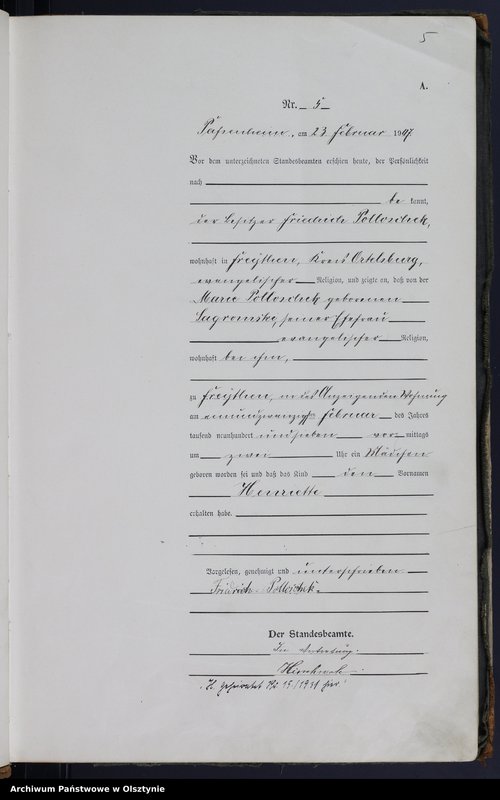 5
A.
Nr. 5
Passenheim, am 23 Februar 1907
Vor dem unterzeichneten Standesbeamten erschien heute, der Persönlichkeit
nach
be kannt,
der Besitzer Friedrich Polloschek,
wohnhaft in Kreis Ortelsburg,
evangelischer Religion, und zeigte an, daß von der
Marie Polloschek geborenen
Sagromski, seiner Ehefrau
evangelischer Religion,
wohnhaft bei ihm,
zu in des Anzeigenden Wohnung
am einundzwanzigsten Februar des Jahres
tausend neunhundert undsieben vor mittags
um zwei Uhr ein Mädchen
geboren worden sei und daß das Kind den Vornamen
Henriette
erhalten habe.
Vorgelesen, genehmigt und unterschrieben
Friedrich Polloschek
Der Standesbeamte.
In Vertretung.
H. geheiratet Nr 15/1931 hier.
Archiwum Państwowe w Olsztynie